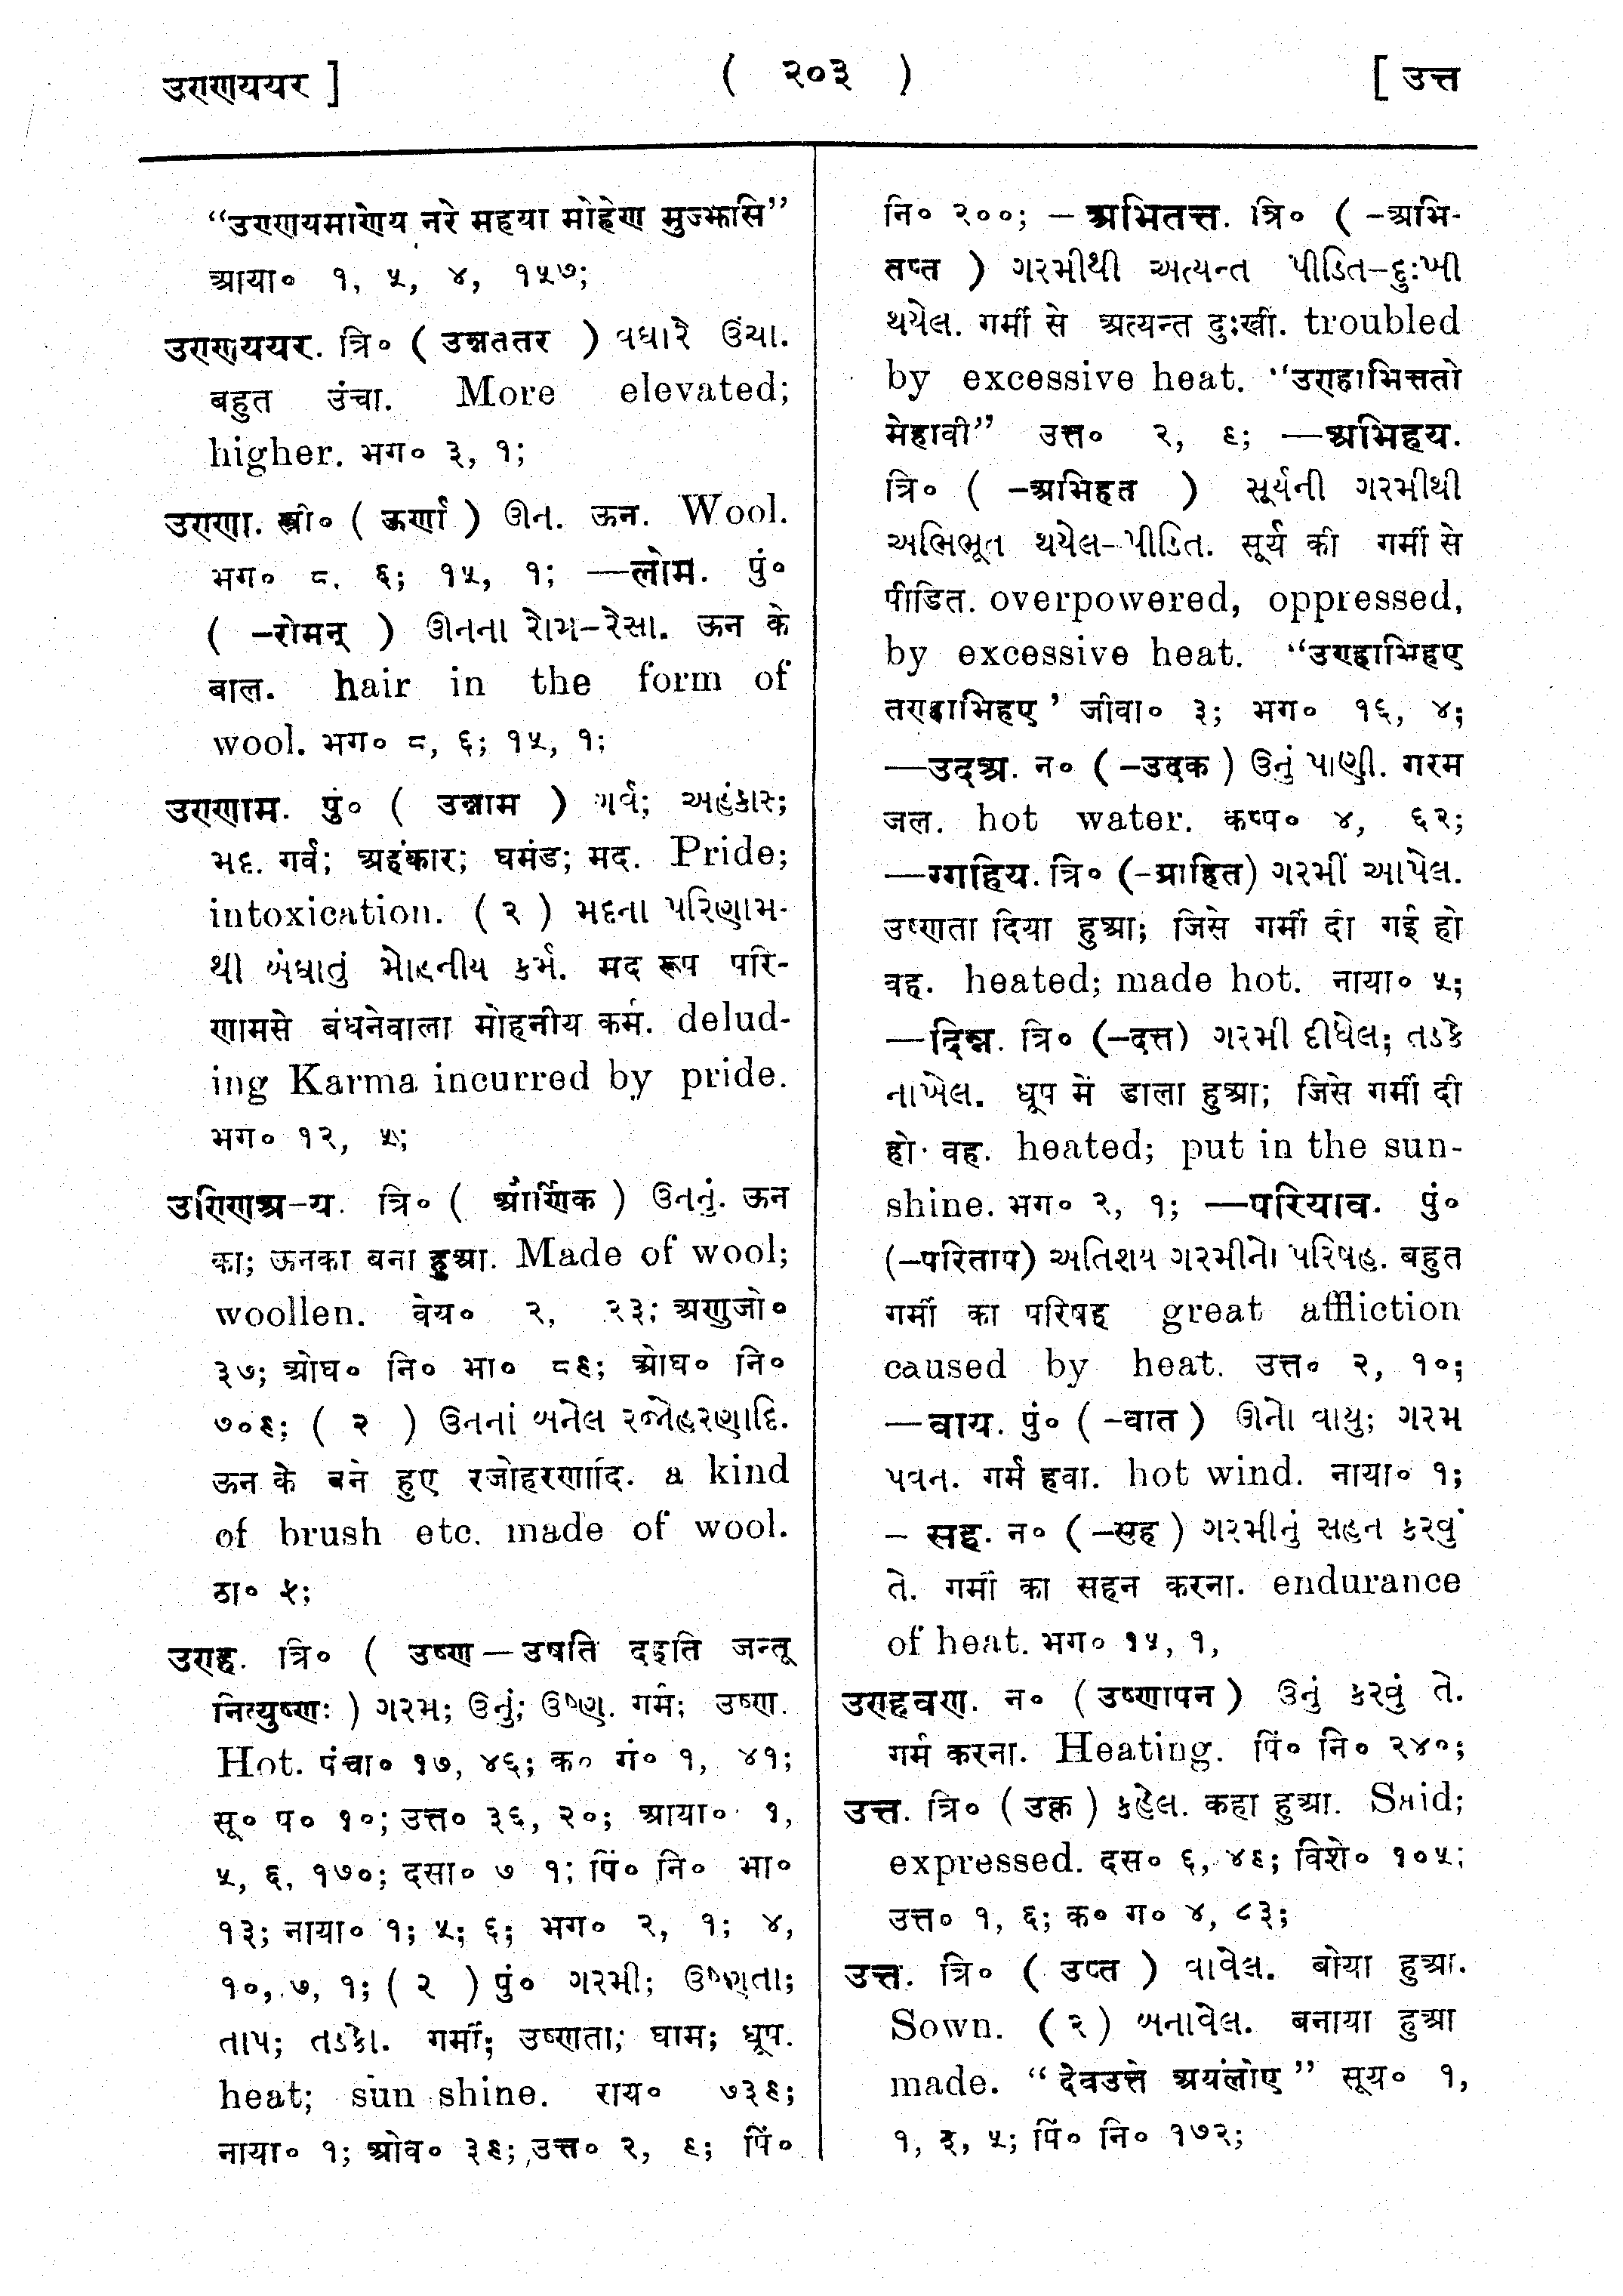 उण्णययर ]
( २०३ )
[ उत्त
“उण्णयमाणेय नरे महया मोहेण मुज्झसि”
आया० १, ५, ४, १५७;
उण्णययर. त्रि० ( उन्नततर ) વધારે ઉંચા.
बहुत उंचा. More elevated;
higher. भग० ३, १;
उण्णा. स्त्री० ( ऊर्णा ) ઊન. ऊन. Wool.
भग० ८, ६; १५, १; —लोम. पुं०
( -रोमन् ) ઊનના રોમ-રેસા. ऊन के
बाल. hair in the form of
wool. भग० ८, ६; १५, १;
उण्णाम. पुं० ( उन्नाम ) ગર્વ; અહંકાર;
મદ. गर्व; अहंकार; घमंड; मद. Pride;
intoxication. ( २ ) મદના પરિણામ-
થી બંધાતું મોહનીય કર્મ. मद रूप परि-
णामसे बंधनेवाला मोहनीय कर्म. delud-
ing Karma incurred by pride.
भग० १२, ५;
उण्णिअ-य. त्रि० ( और्णिक ) ઉનનું. ऊन
का; ऊनका बना हुआ. Made of wool;
woollen. वेय० २, २३; अणुजो०
३७; ओघ० नि० भा० ८६; ओघ० नि०
७०६; ( २ ) ઉનનાં બનેલ રજોહરણાદિ.
ऊन के बने हुए रजोहरणादि. a kind
of brush etc. made of wool.
ठा० ५;
उण्ह. त्रि० ( उष्ण — उषति दहति जन्तू
नित्युष्णः ) ગરમ; ઉનું; ઉષ્ણ. गर्म; उष्ण.
Hot. पंचा० १७, ४६; क० गं० १, ४१;
सू० प० १०; उत्त० ३६, २०; आया० १,
५, ६, १७०; दसा० ७ १; पिं० नि० भा०
१३; नाया० १; ५; ६; भग० २, १; ४,
१०, ७, १; ( २ ) पुं० ગરમી; ઉષ્ણતા;
તાપ; તડકો. गर्मी; उष्णता; घाम; धूप.
heat; sun shine. राय० ७३६;
नाया० १; ओव० ३६; उत्त० २, ६; पिं०
नि० २००; — अभितत्त. त्रि० ( -अभि-
तप्त ) ગરમીથી અત્યન્ત પીડિત-દુઃખી
થયેલ. गर्मी से अत्यन्त दुःखी. troubled
by excessive heat. “उण्हाभित्ततो
मेहावी” उत्त० २, ६; —अभिहय.
त्रि० ( -अभिहत ) સૂર્યની ગરમીથી
અભિભૂત થયેલ-પીડિત. सूर्य की गर्मी से
पीडित. overpowered, oppressed,
by excessive heat. “उण्हाभिहए
तण्हाभिहए ’ जीवा० ३; भग० १६, ४;
—उद्अ. न० ( -उदक ) ઉનું પાણી. गरम
जल. hot water. कप्प० ४, ६२;
—ग्गहिय. त्रि० (-ग्राहित) ગરમી આપેલ.
उष्णता दिया हुआ; जिसे गर्मी दी गई हो
वह. heated; made hot. नाया० ५;
—दिन्न. त्रि० (-दत्त) ગરમી દીધેલ; તડકે
નાખેલ. धूप में डाला हुआ; जिसे गर्मी दी
हो वह. heated; put in the sun-
shine. भग० २, १; —परियाव. पुं०
(-परिताप) અતિશય ગરમીનો પરિષહ. बहुत
गर्मी का परिषह great affliction
caused by heat. उत्त० २, १०;
—वाय. पुं० ( -वात ) ઊનો વાયુ; ગરમ
પવન. गर्म हवा. hot wind. नाया० १;
– सह. न० ( -सह ) ગરમીનું સહન કરવું
તે. गर्मी का सहन करना. endurance
of heat. भग० १५, १,
उण्हवण. न० ( उष्णापन ) ઉનું કરવું તે.
गर्म करना. Heating. पिं० नि० २४०;
उत्त. त्रि० ( उक्त ) કહેલ. कहा हुआ. Said;
expressed. दस० ६, ४६; विशे० १०५;
उत्त० १, ६; क० ग० ४, ८३;
उत्त. त्रि० ( उप्त ) વાવેલ. बोया हुआ.
Sown. ( २ ) બનાવેલ. बनाया हुआ
made. “ देवउत्ते अयंलोए ” सूय० १,
१, ३, ५; पिं० नि० १७२;